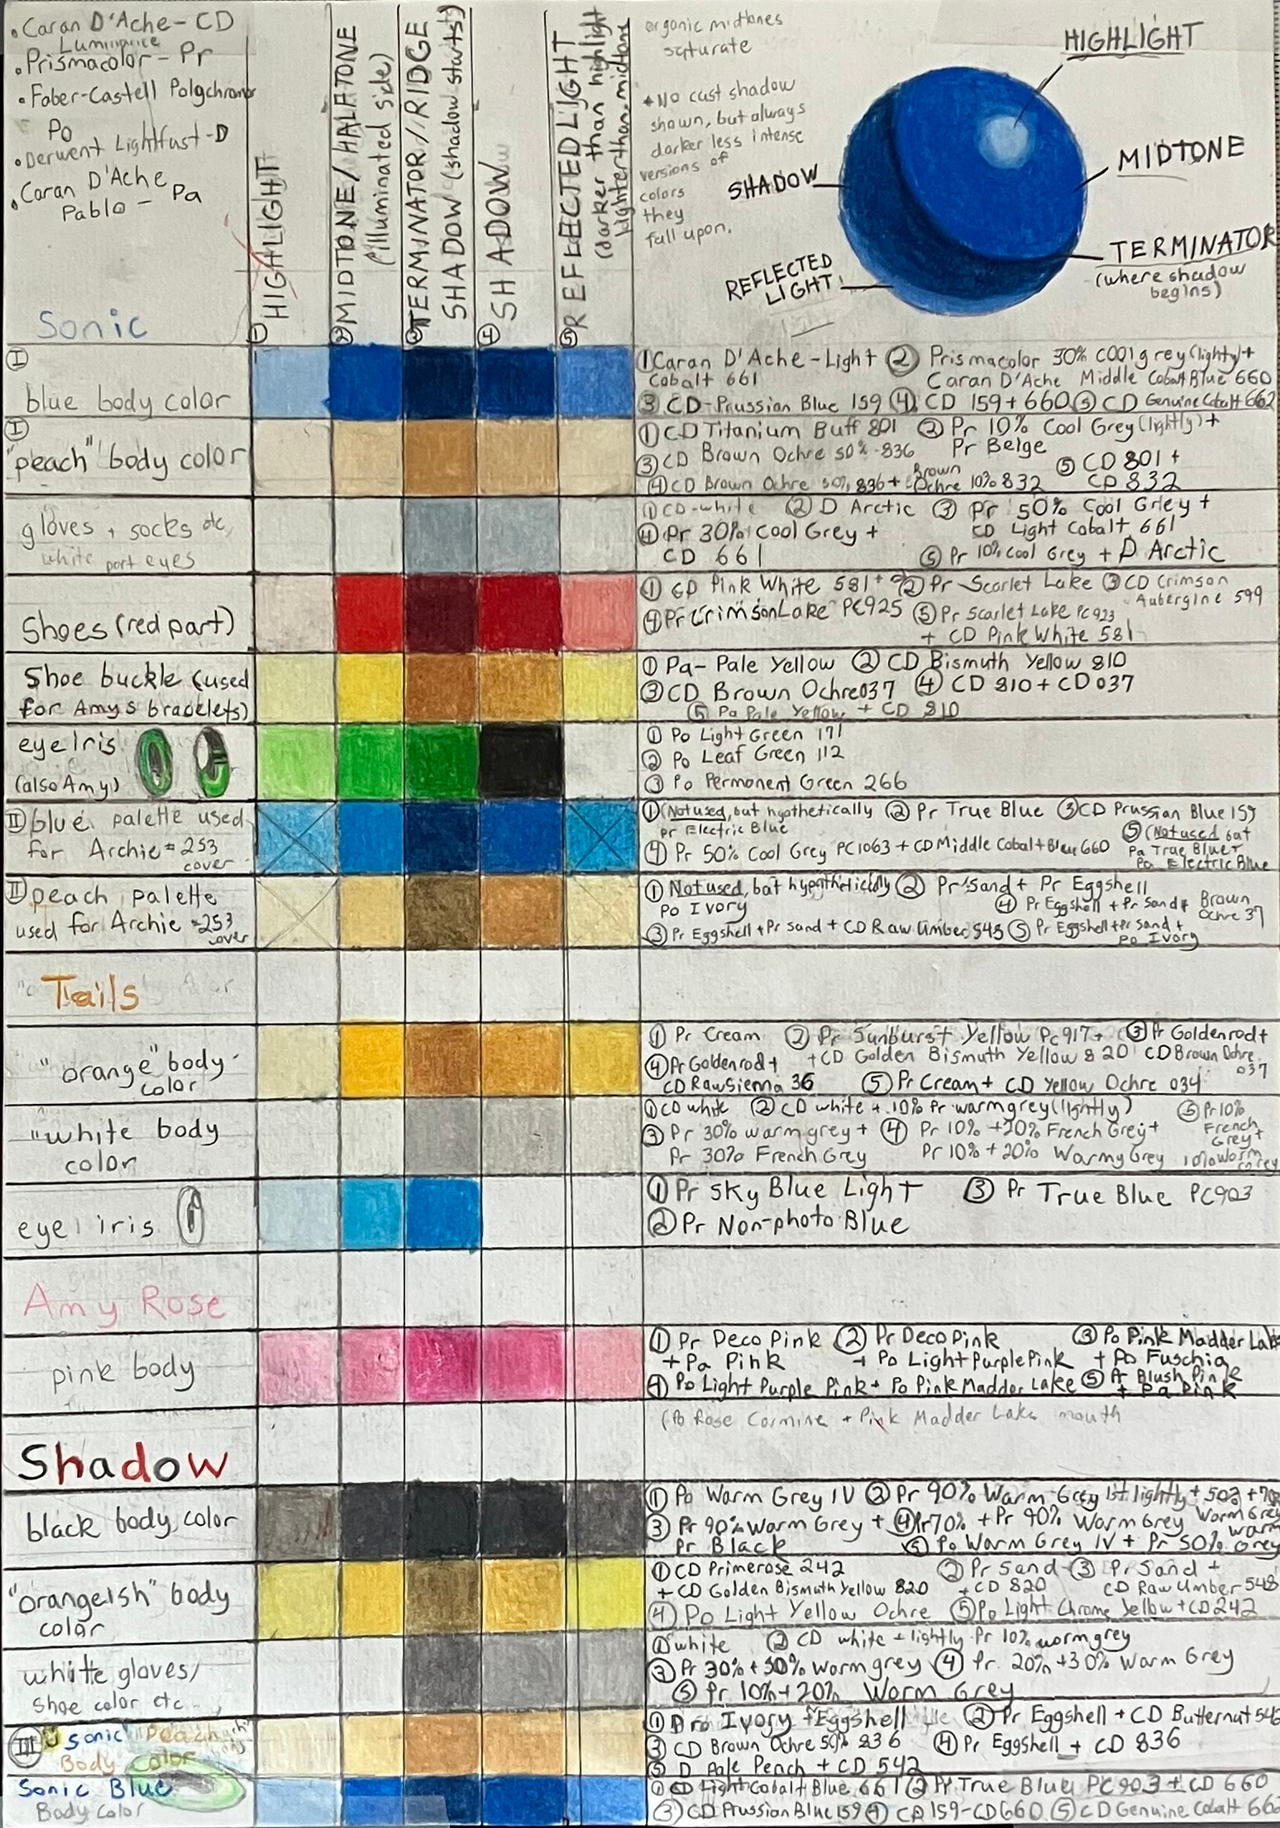 • Caran D'Ache - CD
Luminance
• Prismacolor - Pr
• Faber-Castell Polychromos
Po
• Derwent Lightfast - D
• Caran D'Ache
Pablo - Pa
Sonic
① HIGHLIGHT
② MIDTONE / HALFTONE
(illuminated side)
③ TERMINATOR / RIDGE
SHADOW (shadow starts)
④ SHADOW
⑤ REFLECTED LIGHT
(darker than highlight
lighter than midtone
organic midtones
saturate
* No cast shadow
shown, but always
darker less intense
versions of
colors
they
fall upon.
HIGHLIGHT
MIDTONE
SHADOW
TERMINATOR
(where shadow
begins)
REFLECTED
LIGHT
I
blue body color
① Caran D'Ache - Light + ② Prismacolor 30% cool grey (lightly) +
Cobalt 661 Caran D'Ache Middle Cobalt Blue 660
③ CD - Prussian Blue 159 ④ CD 159 + 660 ⑤ CD Genuine Cobalt 662
I
"peach" body color
① CD Titanium Buff 801 ② Pr 10% Cool Grey (lightly) +
Pr Beige
③ CD Brown Ochre 50% 836 ⑤ CD 801 +
④ CD Brown Ochre 50% 836 + Brown Ochre 10% 832 CD 832
gloves + socks etc,
white part eyes
① CD - white ② D Arctic ③ Pr 50% Cool Grey +
CD Light Cobalt 661
④ Pr 30% Cool Grey +
CD 661 ⑤ Pr 10% Cool Grey + D Arctic
Shoes (red part)
① CD Pink White 581 + ② Pr Scarlet Lake ③ CD Crimson
Aubergine 599
④ Pr Crimson Lake PC925 ⑤ Pr Scarlet Lake PC923
+ CD Pink White 581
Shoe buckle (used
for Amys bracelets)
① Pa - Pale Yellow ② CD Bismuth Yellow 810
③ CD Brown Ochre 037 ④ CD 810 + CD 037
⑤ Pa Pale Yellow + CD 810
eye Iris
(also Amy)
① Po Light Green 171
② Po Leaf Green 112
③ Po Permonent Green 266
II blue palette used
for Archie #253
cover
① (Not used, but hypothetically ② Pr True Blue ③ CD Prussian Blue 159
Pr Electric Blue
④ Pr 50% Cool Grey PC1063 + CD Middle Cobalt Blue 660
⑤ (Not used but
Pa True Blue +
Pa Electric Blue
II peach palette
used for Archie #253
cover
① Not used, but hypothetically ② Pr Sand + Pr Eggshell
Po Ivory ④ Pr Eggshell + Pr Sand + Brown
Ochre 37
③ Pr Eggshell + Pr sand + CD Raw Umber 548 ⑤ Pr Eggshell + Pr sand +
Po Ivory
Tails
"orange" body
color
① Pr Cream ② Pr Sunburst Yellow PC917 + ③ Pr Goldenrod +
④ Pr Goldenrod + + CD Golden Bismuth Yellow 820 CD Brown Ochre
037
CD Raw Sienna 36 ⑤ Pr Cream + CD Yellow Ochre 034
"white body
color
① CD white ② CD white + 10% Pr warm grey (lightly)
③ Pr 30% warm grey + ④ Pr 10% + 20% French Grey +
Pr 30% French Grey Pr 10% + 20% Warmy Grey
⑤ Pr 10%
French
Grey +
10% Warm
Grey
eye Iris
① Pr Sky Blue Light ③ Pr True Blue PC903
② Pr Non-photo Blue
Amy Rose
pink body
① Pr Deco Pink ② Pr Deco Pink ③ Po Pink Madder Lake
+ Pa Pink + Po Light Purple Pink + Po Fuschia
④ Po Light Purple Pink + Po Pink Madder Lake ⑤ Pr Blush Pink
+ Pa Pink
(Po Rose Carmine + Pink Madder Lake mouth
Shadow
black body color
① Po Warm Grey IV ② Pr 90% Warm Grey 1st lightly + 50% + 70%
Warm Grey
③ Pr 90% Warm Grey + ④ Pr 70% + Pr 90% Warm Grey
Pr Black ⑤ Po Warm Grey IV + Pr 50% Warm Grey
"orangeish" body
color
① CD Primerose 242 ② Pr Sand ③ Pr Sand +
+ CD Golden Bismuth Yellow 820 + CD 820 CD Raw Umber 548
④ Po Light Yellow Ochre ⑤ Po Light Chrome Yellow + CD 242
white gloves/
shoe color etc
① white ② CD white + lightly Pr 10% warm grey
③ Pr 30% + 50% Warm grey ④ Pr 20% + 30% Warm Grey
⑤ Pr 10% + 20% Worm Grey
III Sonic Peach
Body color
① Pro Ivory + Eggshell ② Pr Eggshell + CD Butternut 542
③ CD Brown Ochre 50% 836 ④ Pr Eggshell + CD 836
⑤ D Pale Peach + CD 542
Sonic Blue
Body Color
① CD Light Cobalt Blue 661 ② Pr True Blue PC903 + CD 660
③ CD Prussian Blue 159 ④ CD 159 - CD 660 ⑤ CD Genuine Cobalt 660